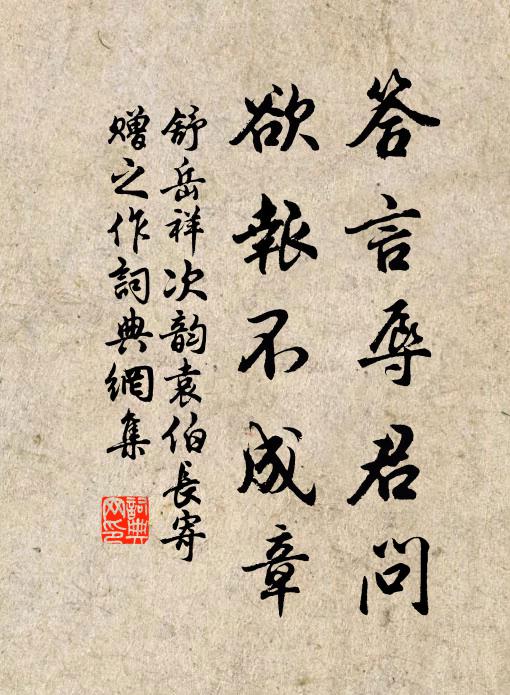 答言辱君問
欲報不成章
舒岳祥次韵袁伯長寄
贈之作詞典網集
詞典
网印